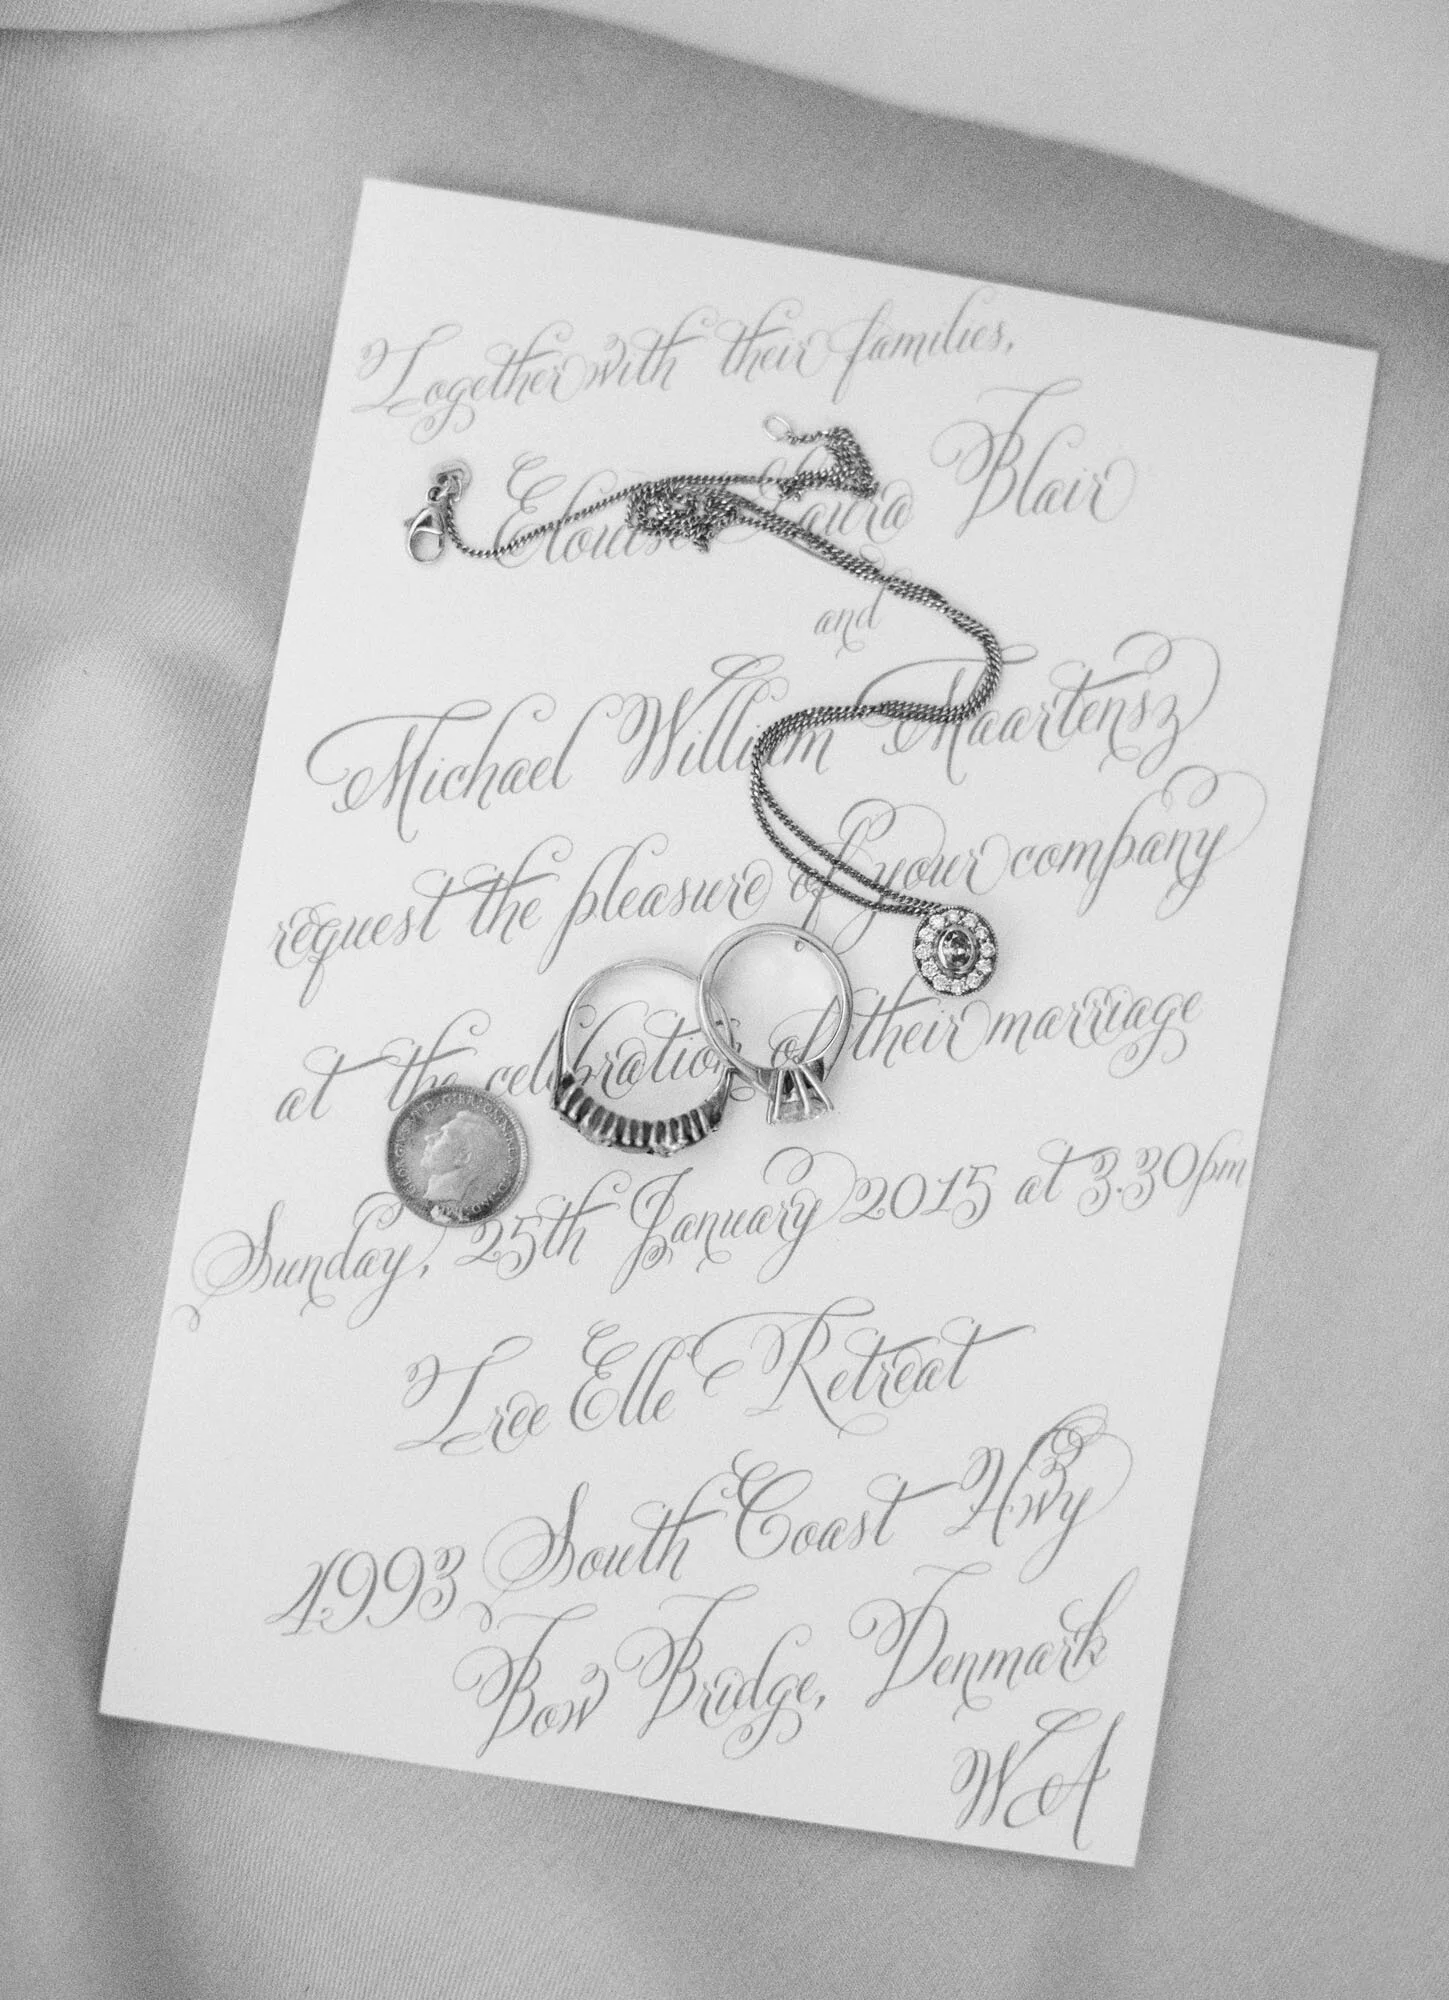 Together with their families,
Elouise Laura Blair
and
Michael William Maartensz
request the pleasure of your company
at the celebration of their marriage
Sunday, 25th January 2015 at 3.30pm
Tree Elle Retreat
4993 South Coast Hwy
Bow Bridge, Denmark
WA